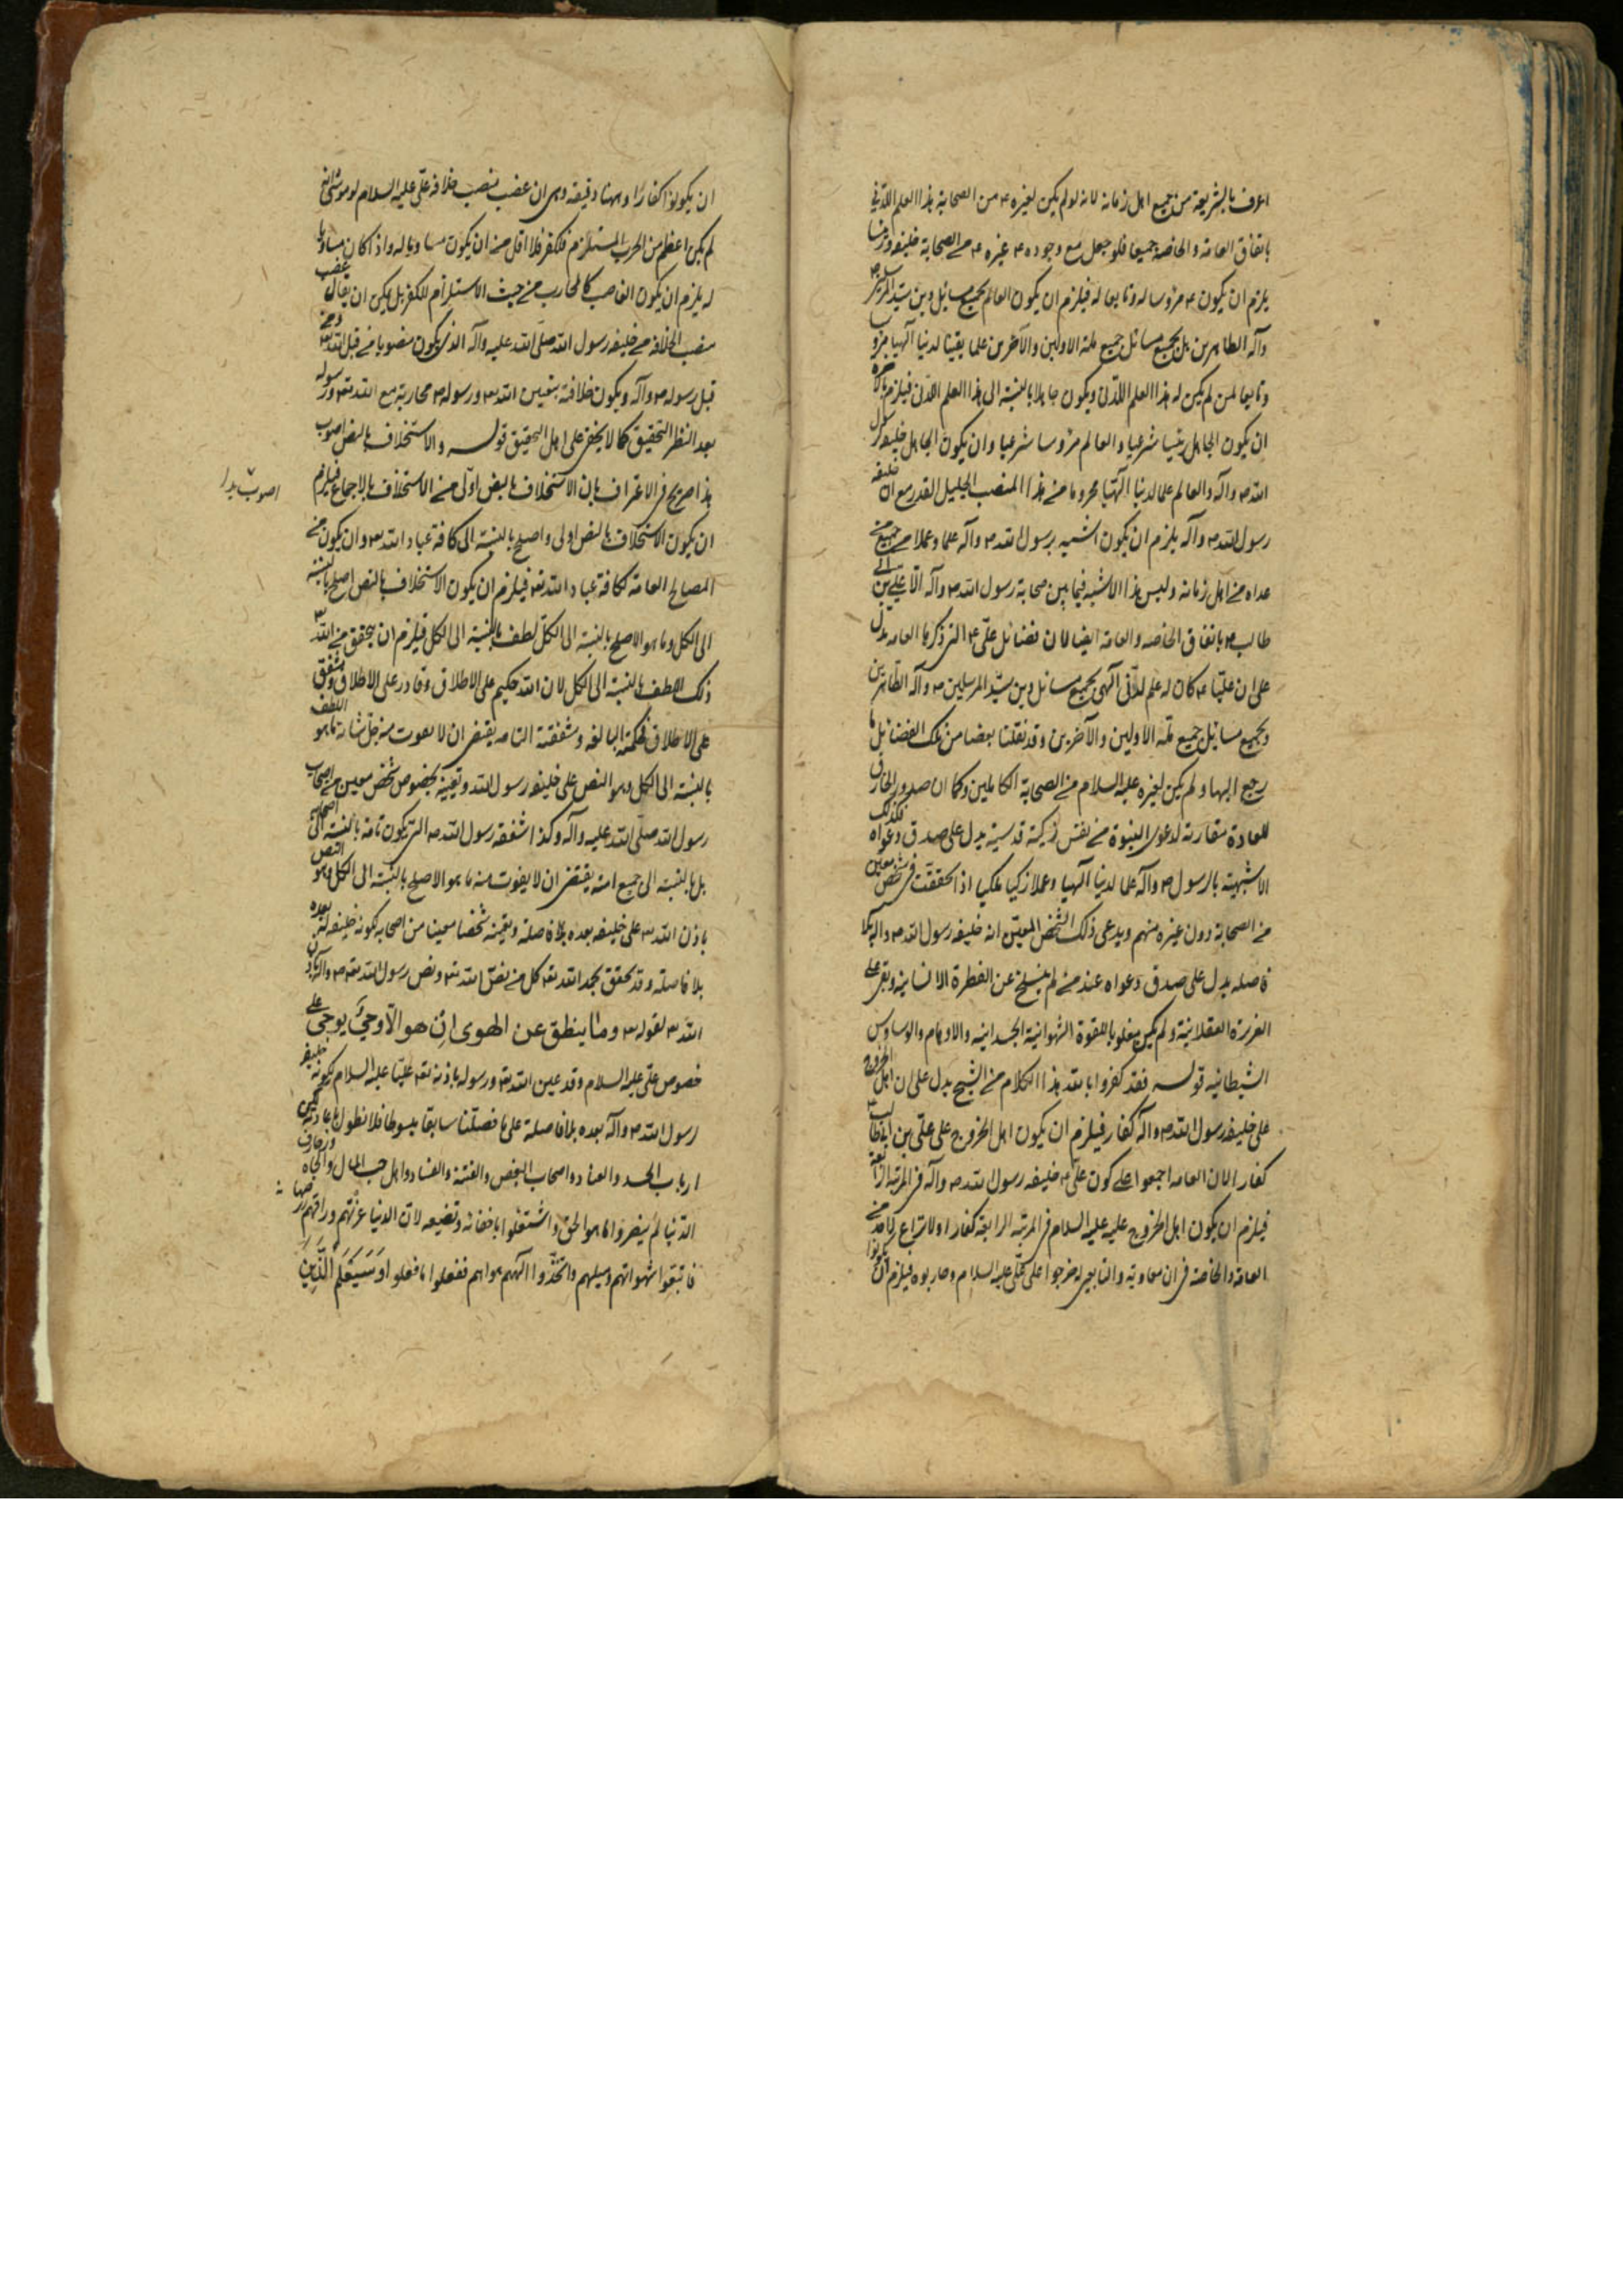 اعرف بالشريعة من جميع اهل زمانه لانه لو لم يكن لغيره ع من الصحابة هذا العلم اللدني
باتفاق العامة والخاصة جميعا فلو جعل مع وجوده ع غيره ع من الصحابة خليفة ورئيسا
يلزم ان يكون ع مرؤسا له وتابعا له فيلزم ان يكون العالم بجميع مسائل دين سيد المرسلين ص
وآله الطاهرين بل بجميع مسائل جميع ملة الاولين والآخرين علما يقينا لدنيا آلهيا مرؤسا
وتابعا لمن لم يكن له هذا العلم اللدني ويكون جاهلا بالنسبة الى هذا العلم اللدني فيلزم بالاخرة
ان يكون الجاهل رئيسا شرعيا والعالم مرؤسا شرعيا وان يكون الجاهل خليفة رسول
الله ص وآله والعالم علما لدنيا آلهيا محروما من هذا المنصب الجليل القدر مع ان خليفة
رسول الله ص وآله يلزم ان يكون اشبه برسول الله ص وآله علما وعملا من جميع من
عداه من اهل زمانه وليس هذا الاشبه فيما بين صحابة رسول الله ص وآله الا علي بن ابي
طالب ع باتفاق الخاصه والعامة ايضا لان فضائل علي ع التي ذكرها العامه تدل
على ان عليا ع كان له علم لدني آلهي بجميع مسائل دين سيد المرسلين ص وآله الطاهرين
وبجميع مسائل جميع ملة الاولين والآخرين وقد نقلنا بعضا من تلك الفضائل
رجع اليها ولم يكن لغيره عليه السلام من الصحابة الكاملين وكما ان صدور الخارق
للعادة مقارنة لدعوى النبوة من نفس زكية قدسية يدل على صدق دعواه فكذلك
الاشبهية بالرسول ص وآله علما لدنيا آلهيا وعملا زكيا ملكيا اذا تحققت في شخص معين
من الصحابة دون غيره منهم ويدعى ذلك الشخص المعين انه خليفة رسول الله ص وآله بلا
فاصله يدل على صدق دعواه عند من لم ينسلخ عن الفطرة الانسانية وبقي على
الغريزة العقلانية ولم يكن مغلوبا للقوة الشهوانية الجسدانيه والاوهام والوساوس
الشيطانيه قوله فقد كفروا بالله هذا الكلام من الشيخ يدل على ان اهل الخروج
على خليفة رسول الله ص وآله كفار فيلزم ان يكون اهل الخروج على علي بن ابيطالب ع
كفار الان العامه اجمعوا على كون علي ع خليفه رسول الله ص وآله في المرتبة الرابعة
فيلزم ان يكون اهل الخروج عليه عليه السلام في المرتبة الرابعة كفارا ولا نزاع لاحد من
العامة والخاصة في ان معاوية والتابعين له خرجوا على علي عليه السلام وحاربوه فيلزم ان يكونوا
ان يكونوا كفارا وههنا دقيقه وهي ان غصب منصب خلافة علي عليه السلام لو
لم يكن اعظم من الحرب المستلزم للكفر فلا اقل من ان يكون مساويا له واذا كان مساويا
له يلزم ان يكون الغاصب كالمحارب من حيث الاستلزام للكفر بل يمكن ان يقال غصب
منصب الخلافة من خليفة رسول الله صلى الله عليه وآله الذي يكون منصوبا من قبل الله تع ومن
قبل رسوله ص وآله ويكون خلافته بتعيين الله تع ورسوله ص محاربة مع الله تع ورسوله
بعد النظر التحقيق كما لا يخفى على اهل التحقيق قوله والاستخلاف بالنص اصوب
هذا صريح في الاعتراف بان الاستخلاف بالنص اولى من الاستخلاف بالاجماع فيلزم
اصوب بدا
ان يكون الاستخلاف بالنص اولى واصلح بالنسبة الى كافة عباد الله تع وان يكون من
المصالح العامة لكافة عباد الله تع فيلزم ان يكون الاستخلاف بالنص اصلح بالنسبة
الى الكل وما هو الاصلح بالنسبة الى الكل لطف بالنسبة الى الكل فيلزم ان يتحقق من الله تع
ذلك اللطف بالنسبة الى الكل لان الله حكيم على الاطلاق وقادر على الاطلاق ومشفق
على الاطلاق فحكمته البالغه وشفقته التامه يقتضى ان لا يفوت منه جل شانه ما هو اللطف
بالنسبة الى الكل وهو النص على خليفة رسول الله وتعيينه بخصوص شخص معين من اصحاب
رسول الله صلى الله عليه وآله وكذا شفقة رسول الله ص التي يكون تامة بالنسبة الى اصحابه
بل بالنسبة الى جميع امته يقتضى ان لا يفوت منه ما هو الاصلح بالنسبة الى الكل وهو النص
باذن الله تع على خليفه بعده بلا فاصله وتعيينه شخصا معينا من اصحابه لكونه خليفه له بعده
بلا فاصله وقد تحقق بحمد الله تع كل من نص الله تع ونص رسول الله ص وآله باذن
الله تع لقوله تع وما ينطق عن الهوى ان هو الا وحي يوحى على
خصوص علي عليه السلام وقد عين الله تع ورسوله باذنه تع عليا عليه السلام لكونه خليفة
رسول الله ص وآله بعده بلا فاصلة على ما فصلنا سابقا مبسوطا فلا نطول باعادته لكن
ارباب الحسد والعناد واصحاب البغض والفتنة والفساد واهل حب المال والجاه وزخارف
الدنيا لم ينصروا ما هو الحق واشتغلوا باخفائه وتضييعه لان الدنيا غرتهم وراقهم زبرجها
فاتبعوا شهواتهم وميلهم واتخذوا آلههم هواهم ففعلوا ما فعلوا وَسَيَعْلَمُ الَّذِينَ